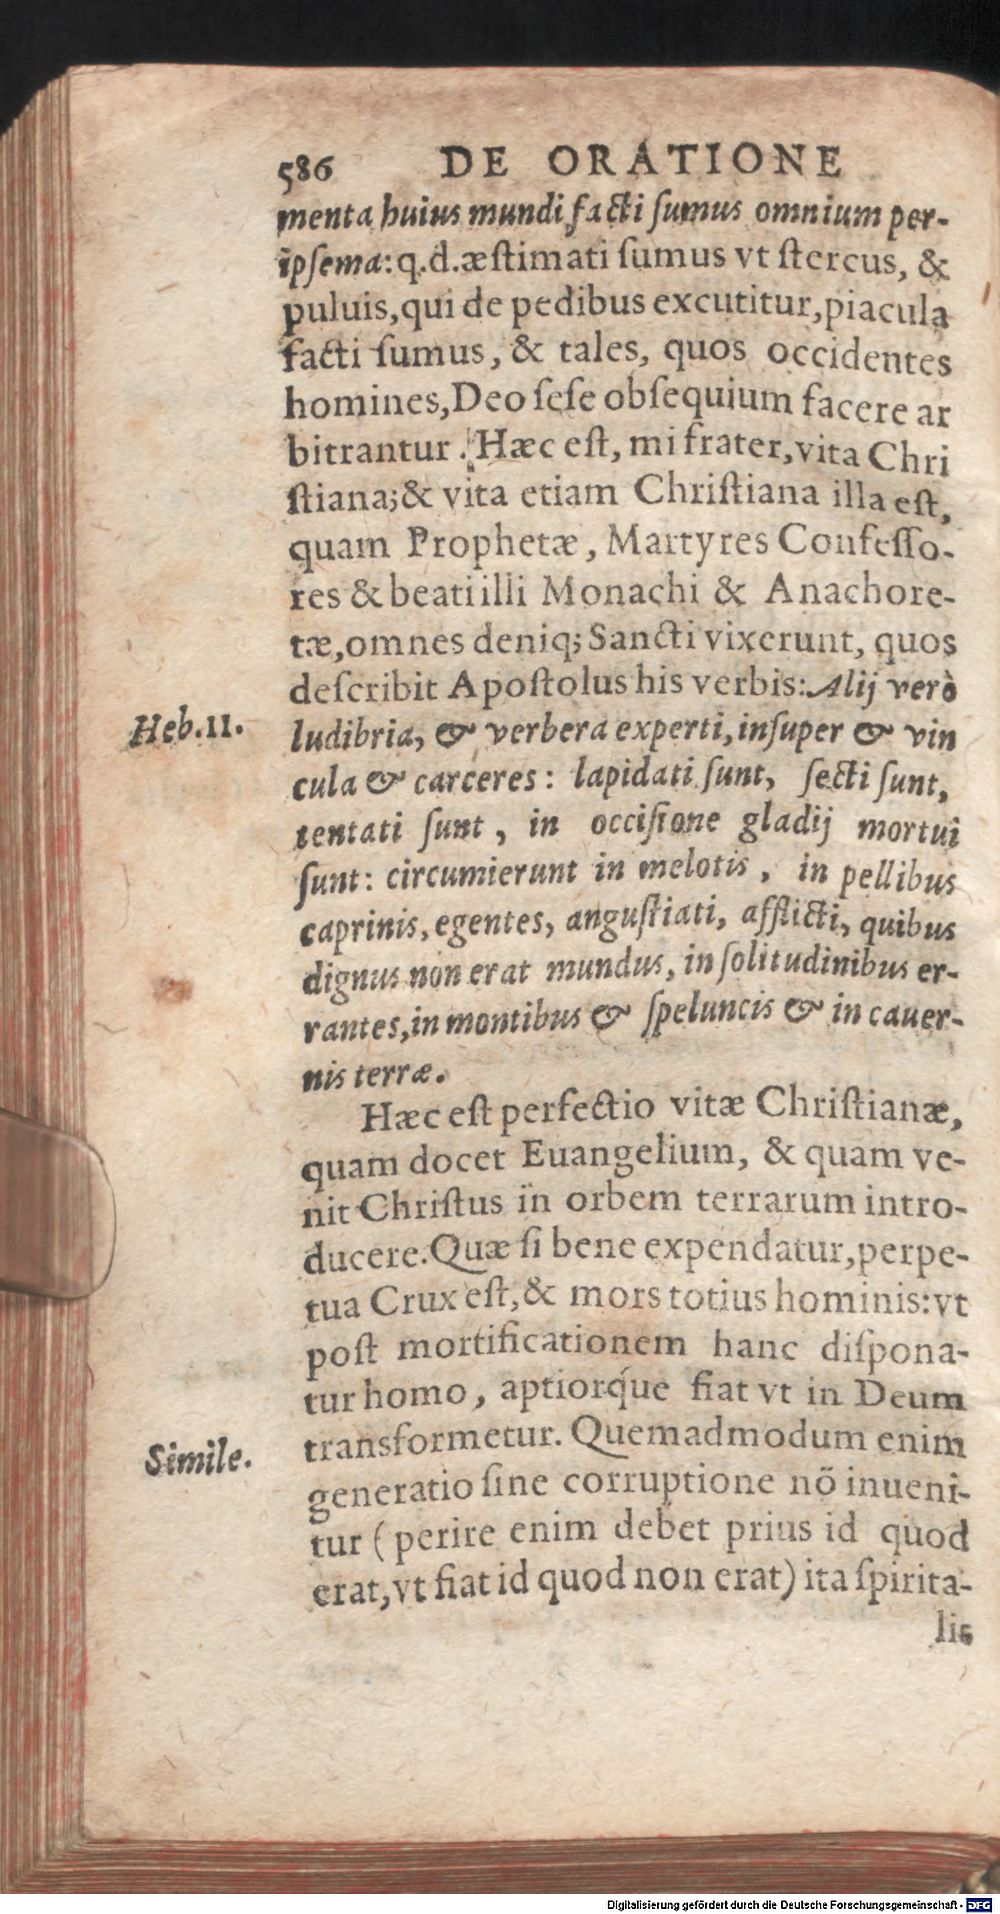 586 DE ORATIONE
menta huius mundi facti ſumus omnium per-
ipſema: q.d. æſtimati ſumus vt ſtercus, &
puluis, qui de pedibus excutitur, piacula
facti ſumus, & tales, quos occidentes
homines, Deo ſeſe obſequium facere ar
bitrantur. Hæc eſt, mi frater, vita Chri
ſtiana; & vita etiam Chriſtiana illa eſt,
quam Prophetæ, Martyres Confeſſo-
res & beati illi Monachi & Anachore-
tæ, omnes deniq; Sancti vixerunt, quos
deſcribit Apoſtolus his verbis: Alij verò
Heb. 11.
ludibria, & verbera experti, inſuper & vin
cula & carceres: lapidati ſunt, ſecti ſunt,
tentati ſunt, in occiſione gladij mortui
ſunt: circumierunt in melotis, in pellibus
caprinis, egentes, anguſtiati, afflicti, quibus
dignus non erat mundus, in ſolitudinibus er-
rantes, in montibus & ſpeluncis & in cauer-
nis terræ.
Hæc eſt perfectio vitæ Chriſtianæ,
quam docet Euangelium, & quam ve-
nit Chriſtus in orbem terrarum intro-
ducere. Quæ ſi bene expendatur, perpe-
tua Crux eſt, & mors totius hominis: vt
poſt mortificationem hanc diſpona-
tur homo, aptiorq́ue fiat vt in Deum
transformetur. Quemadmodum enim
Simile.
generatio ſine corruptione nõ inueni-
tur (perire enim debet prius id quod
erat, vt fiat id quod non erat) ita ſpirita-
lis
Digitalisierung gefördert durch die Deutsche Forschungsgemeinschaft - DFG